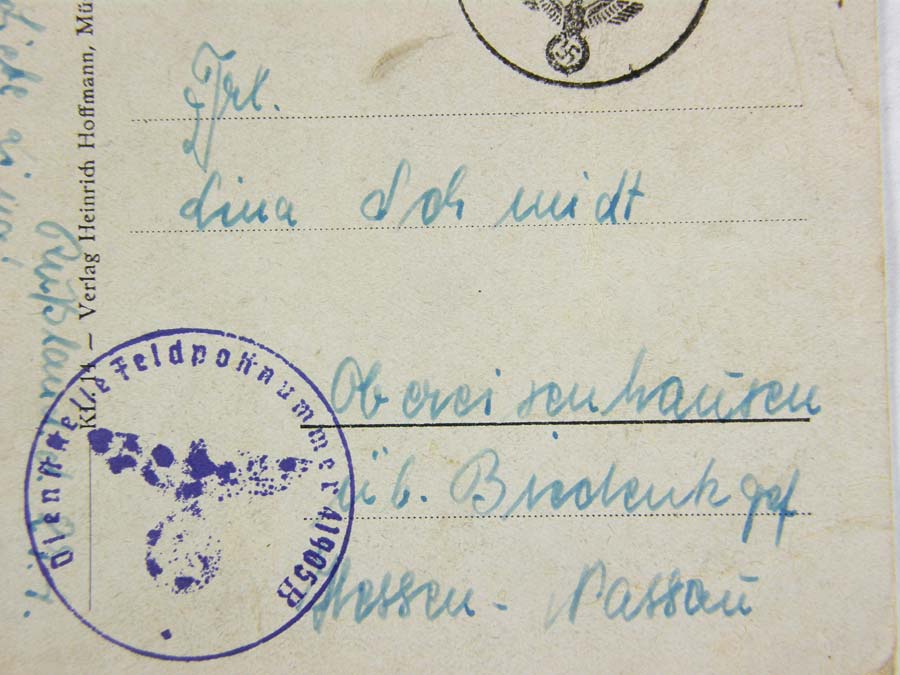 Frl.
Lina Schmidt
Obereisenhausen
üb. Biedenkopf
Hessen-Nassau
Dienststelle Feldpostnummer 41905B
KL. 14 – Verlag Heinrich Hoffmann, Mü
Rußland